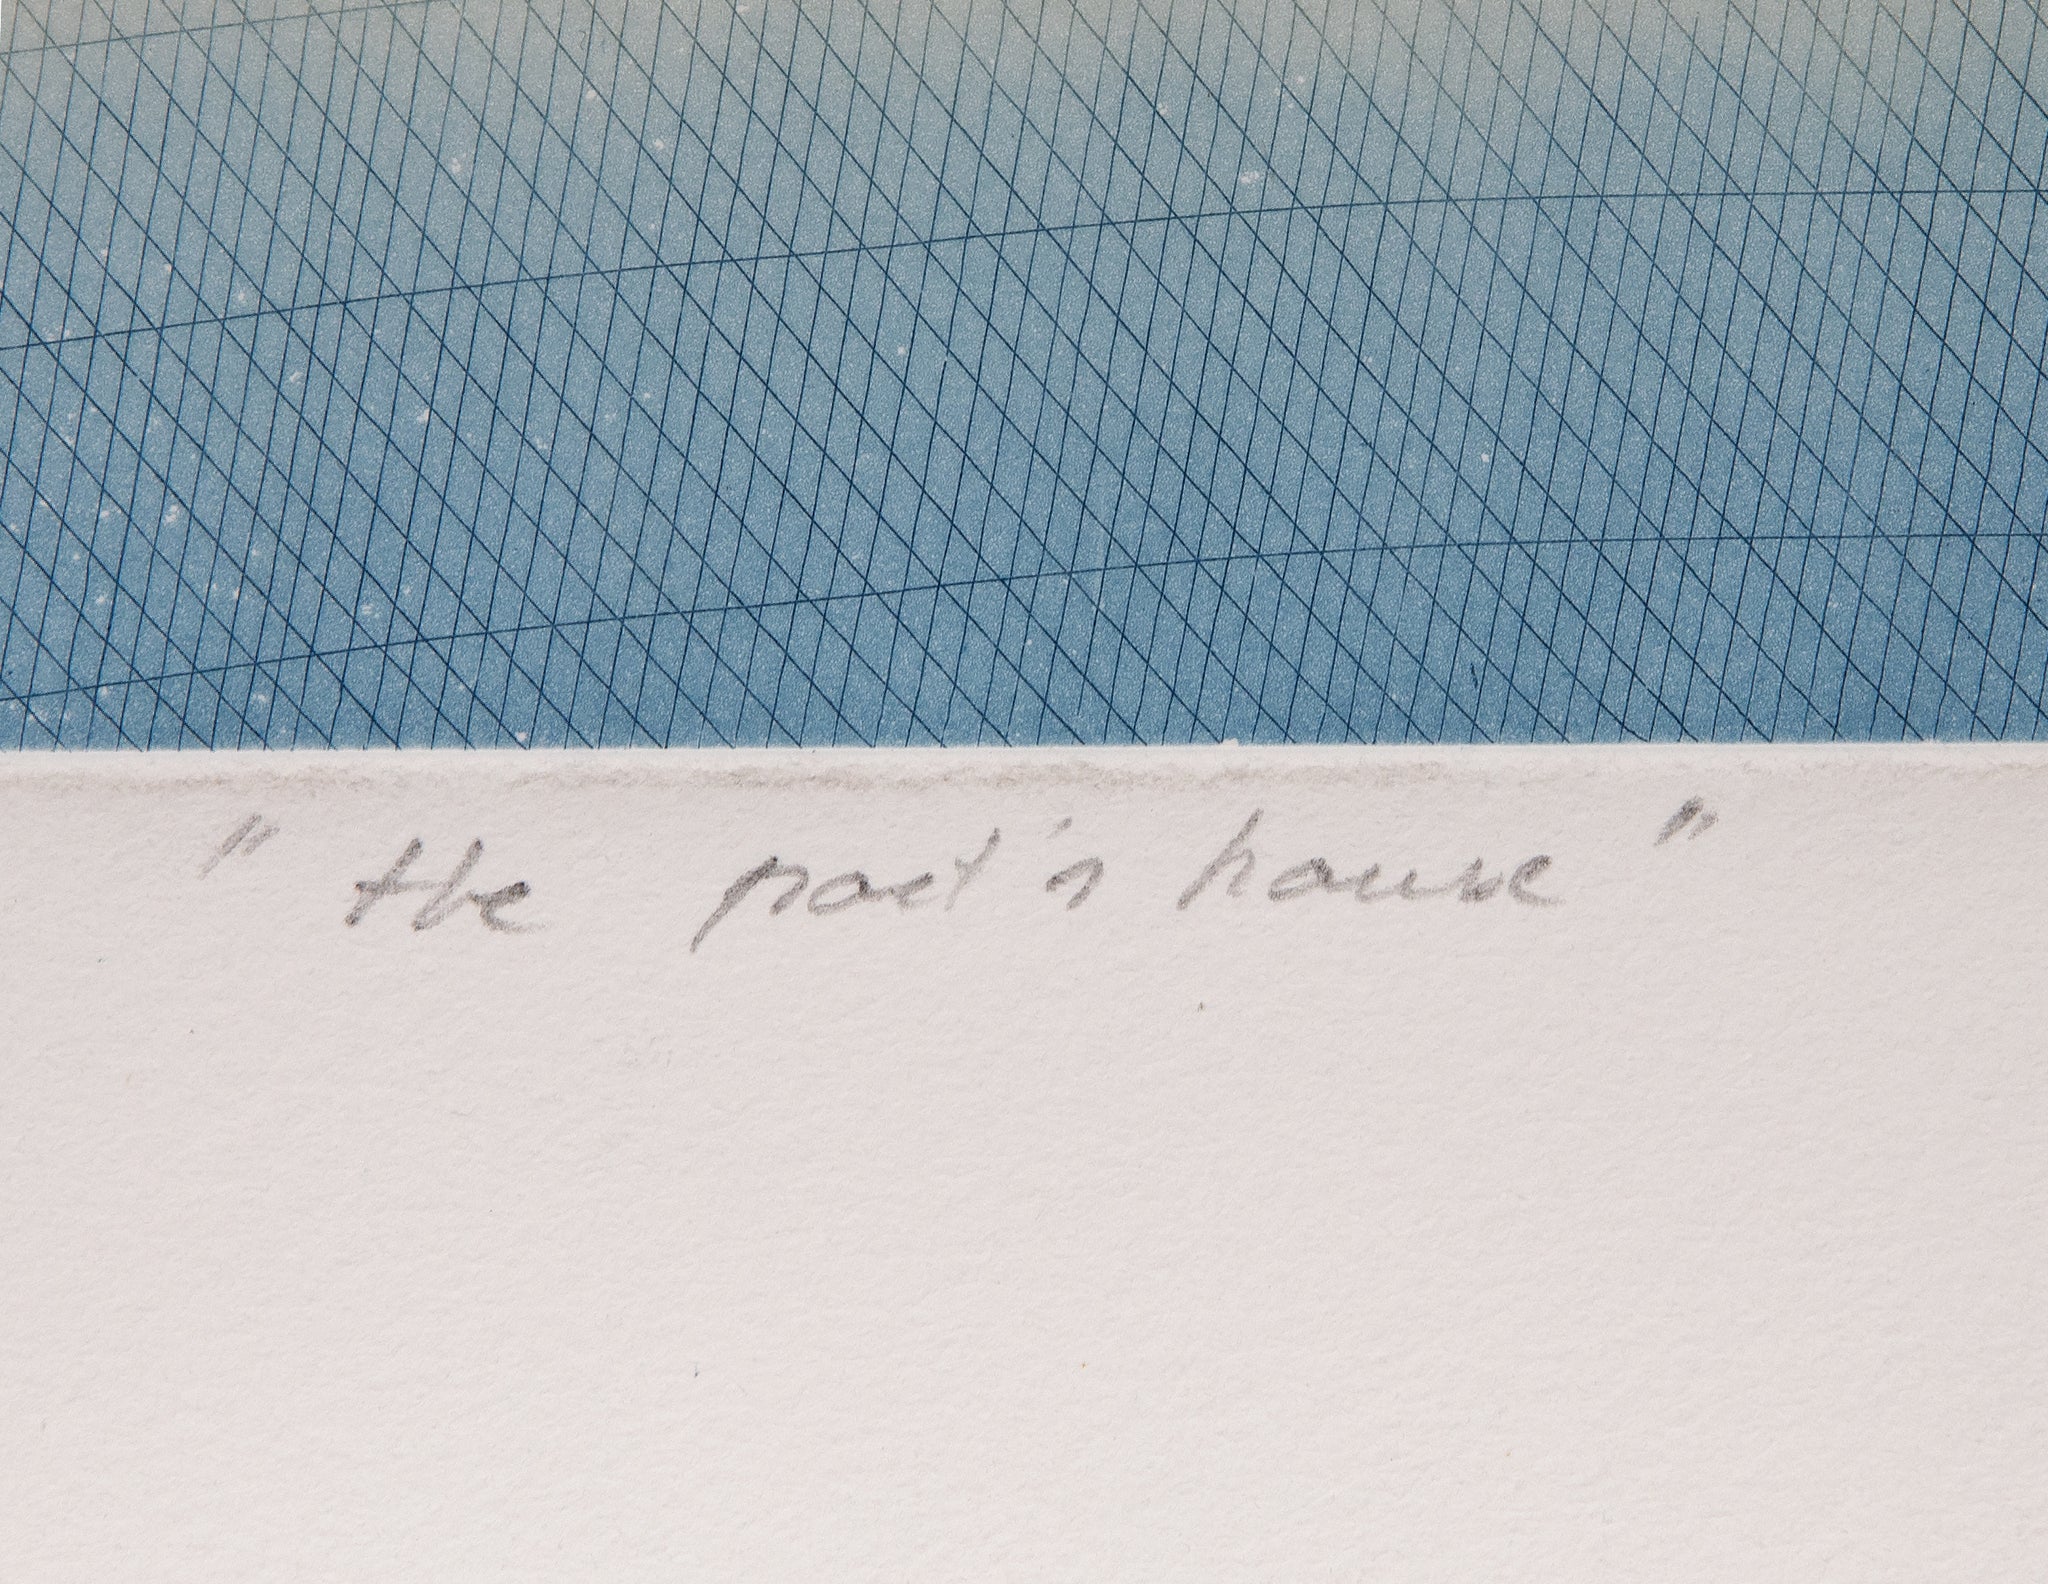 "the poet's house"